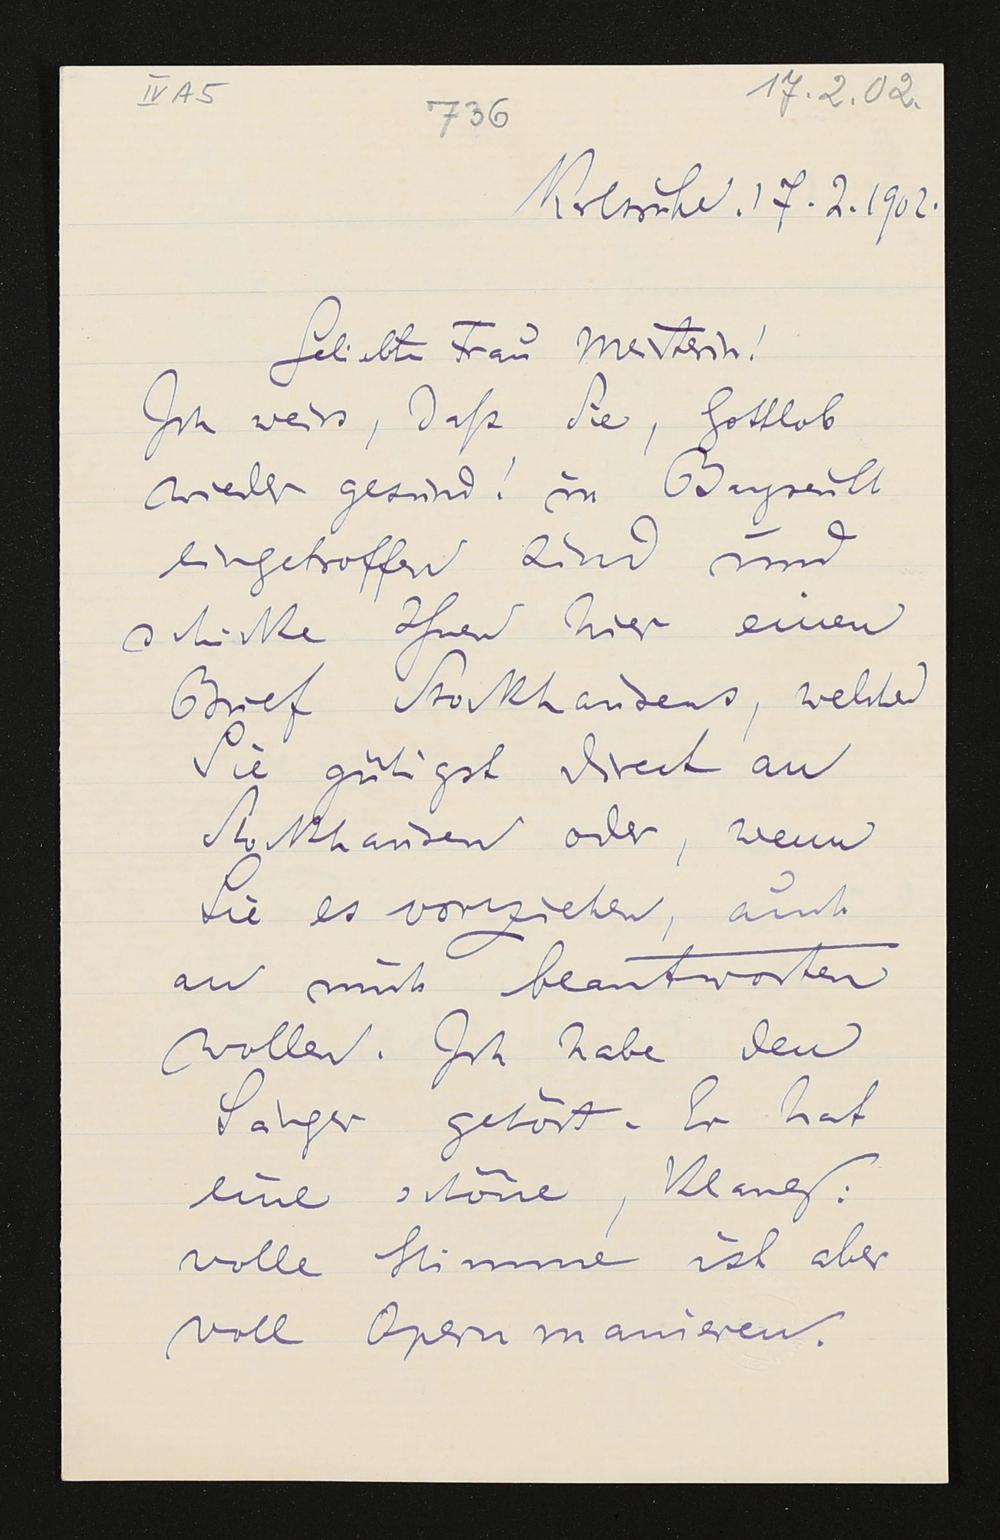 IV A 5
736
17.2.02.
Karlsruhe. 17.2.1902.
Geliebte Frau Meisterin!
Ich weiss, daß Sie, Gottlob
wieder gesund! in Bayreuth
eingetroffen sind und
schicke Ihnen hier einen
Brief Stockhausens, welchen
Sie gütigst direct an
Stockhausen oder, wenn
Sie es vorziehen, auch
an mich beantworten
wollen. Ich habe den
Sänger gehört. Er hat
eine schöne, klang:
volle Stimme ist aber
voll Opernmanieren.